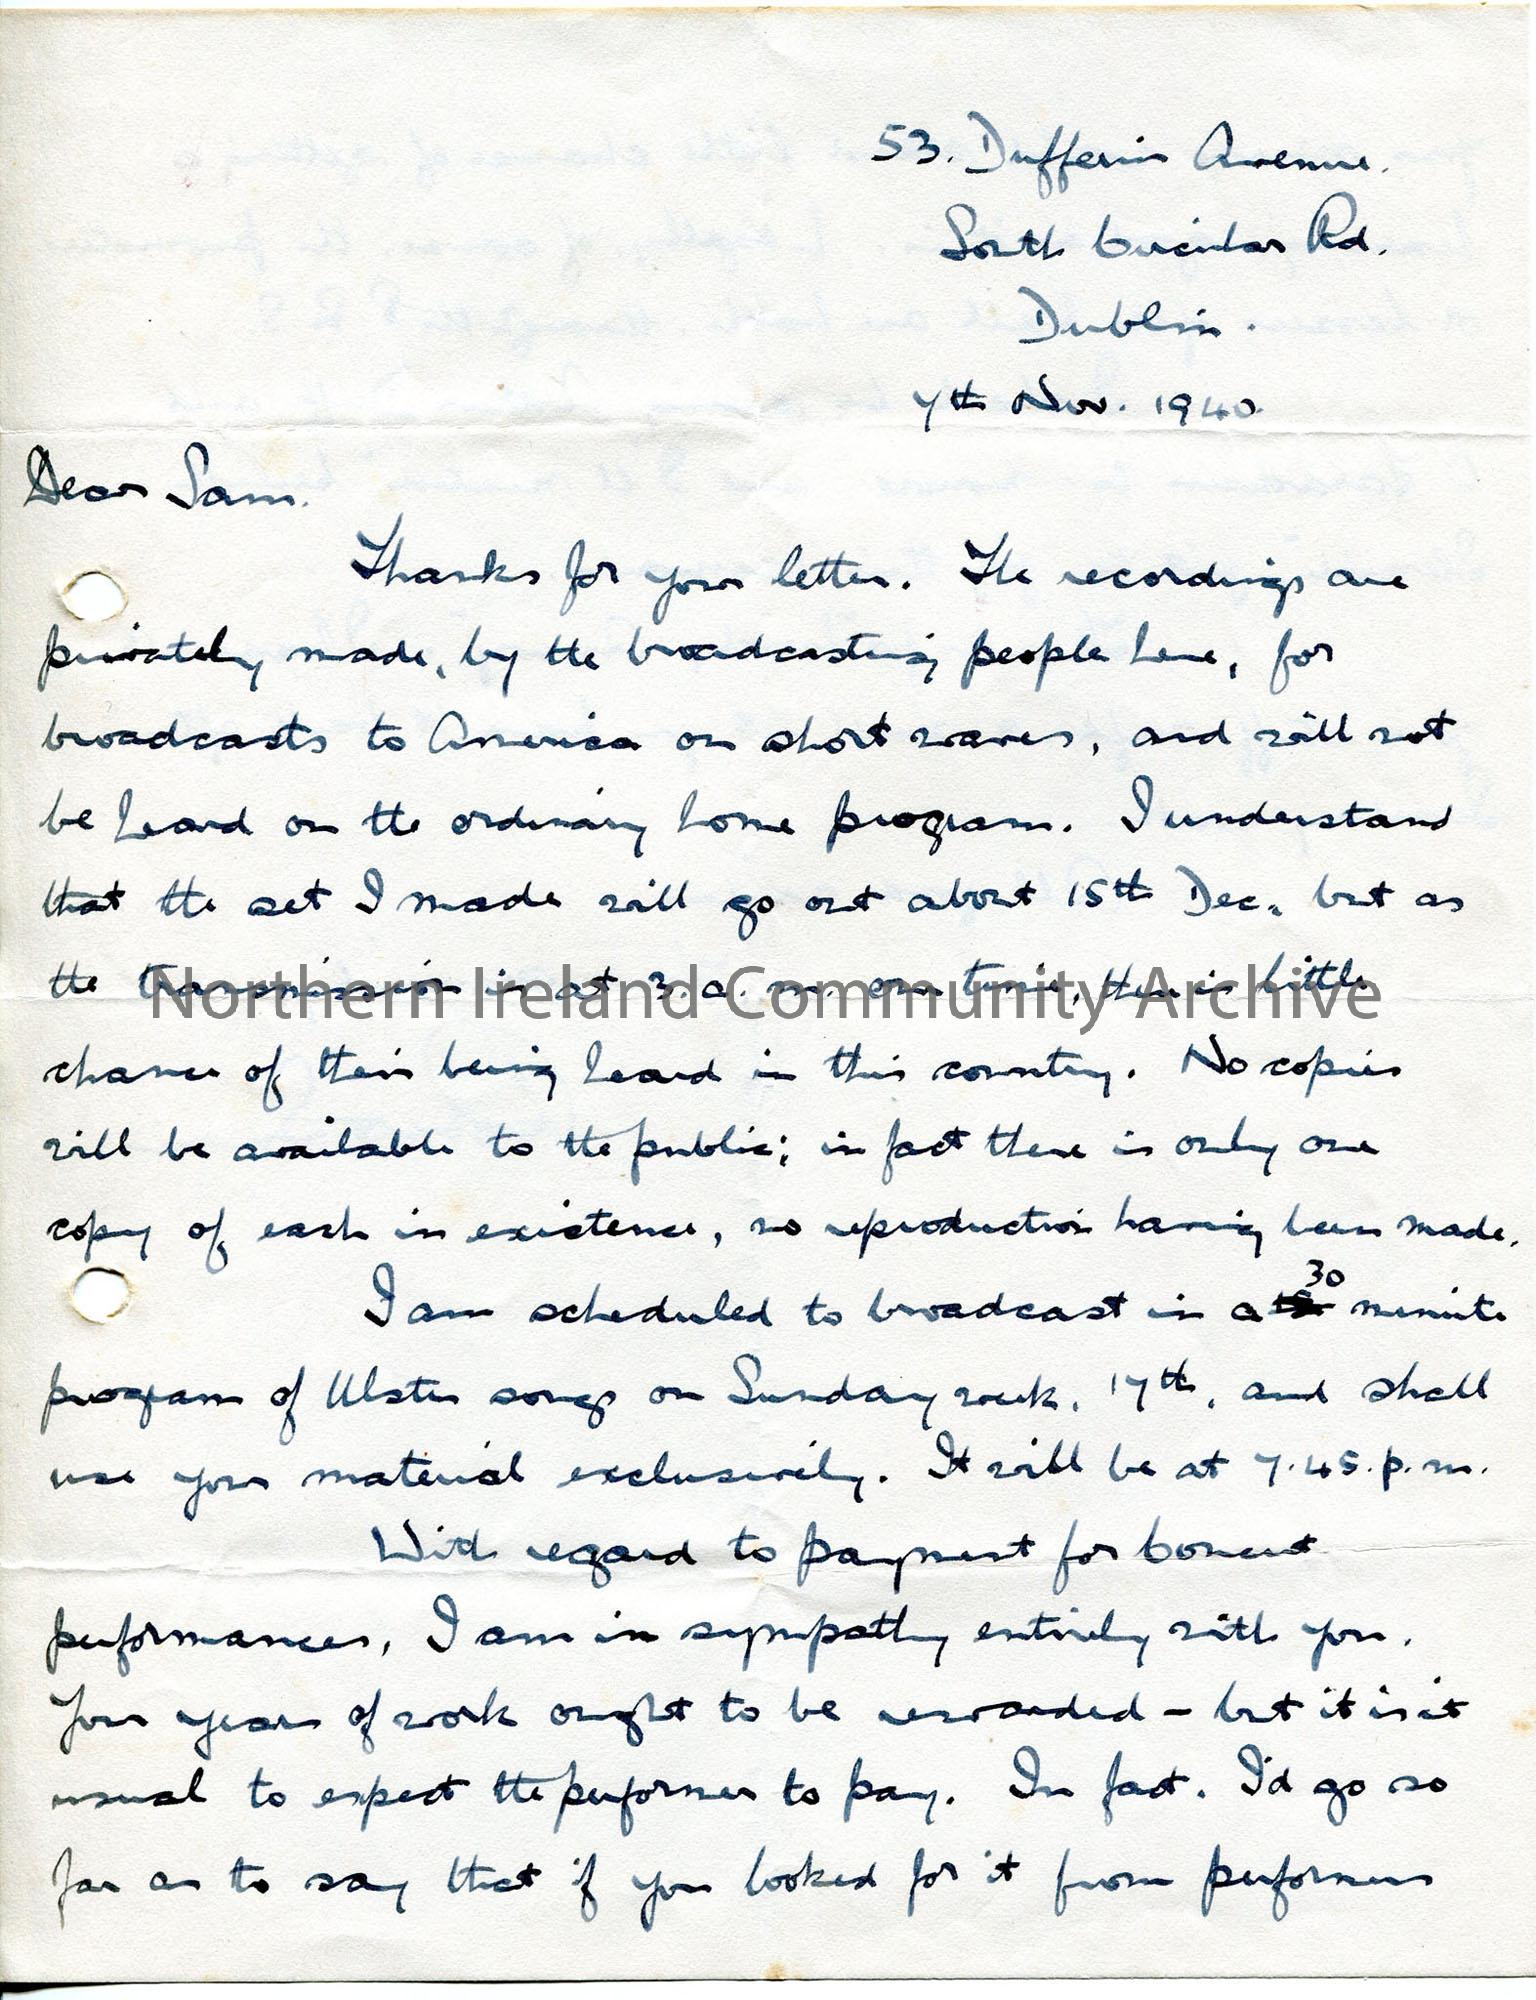 53. Dufferin Avenue.
South Circular Rd.
Dublin.
7th Nov. 1940.
Dear Sam.
Thanks for your letter. The recordings are
privately made, by the broadcasting people here, for
broadcasts to America on short waves, and will not
be heard on the ordinary home program. I understand
that the set I made will go out about 15th Dec. but as
the transmission is at 3. a. m. our time, there is little
Northern Ireland Community Archive
chance of their being heard in this country. No copies
will be available to the public; in fact there is only one
copy of each in existence, no reproduction having been made.
I am scheduled to broadcast in a 30 minute
program of Ulster songs on Sunday week, 17th, and shall
use your material exclusively. It will be at 7.45. p. m.
With regard to payment for Concert
performances, I am in sympathy entirely with you.
Your years of work ought to be rewarded – but it is it
usual to expect the performer to pay. In fact. I'd go so
far as to say that if you looked for it from performers